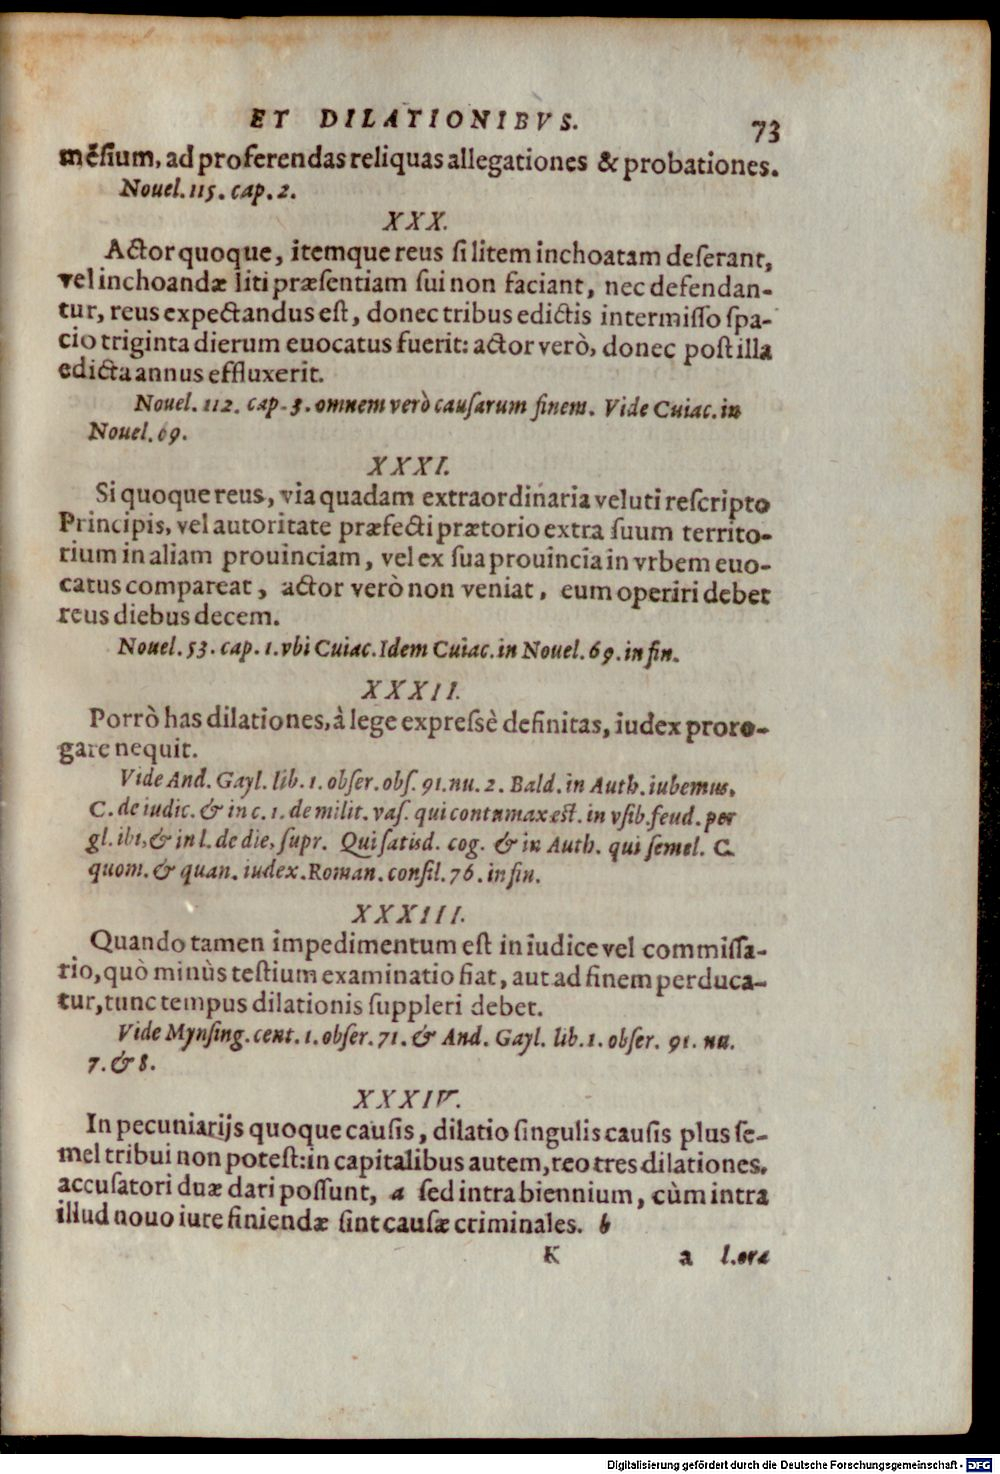 ET DILATIONIBVS. 73
mēſium, ad proferendas reliquas allegationes & probationes.
Nouel. 115. cap. 2.
XXX.
Actor quoque, itemque reus ſi litem inchoatam deſerant,
vel inchoandæ liti præſentiam ſui non faciant, nec defendan-
tur, reus expectandus eſt, donec tribus edictis intermiſſo ſpa-
cio triginta dierum euocatus fuerit: actor verò, donec poſt illa
edicta annus effluxerit.
Nouel. 112. cap. 3. omnem verò cauſarum finem. Vide Cuiac. in
Nouel. 69.
XXXI.
Si quoque reus, via quadam extraordinaria veluti reſcripto
Principis, vel autoritate præfecti prætorio extra ſuum territo-
rium in aliam prouinciam, vel ex ſua prouincia in vrbem euo-
catus compareat, actor verò non veniat, eum operiri debet
reus diebus decem.
Nouel. 53. cap. 1. vbi Cuiac. Idem Cuiac. in Nouel. 69. in fin.
XXXII.
Porrò has dilationes, à lege expreſsè definitas, iudex proro-
gare nequit.
Vide And. Gayl. lib. 1. obſer. obſ. 91. nu. 2. Bald. in Auth. iubemus.
C. de iudic. & in c. 1. de milit. vaſ. qui contumax est. in vſib. feud. per
gl. ibi, & in l. de die, ſupr. Qui ſatisd. cog. & in Auth. qui ſemel. C.
quom. & quan. iudex. Roman. conſil. 76. in fin.
XXXIII.
Quando tamen impedimentum eſt in iudice vel commiſſa-
rio, quò minùs teſtium examinatio fiat, aut ad finem perduca-
tur, tunc tempus dilationis ſuppleri debet.
Vide Mynſing. cent. 1. obſer. 71. & And. Gayl. lib. 1. obſer. 91. nu.
7. & 8.
XXXIV.
In pecuniarijs quoque cauſis, dilatio ſingulis cauſis plus ſe-
mel tribui non poteſt: in capitalibus autem, reo tres dilationes,
accuſatori duæ dari poſſunt, a ſed intra biennium, cùm intra
illud nouo iure finiendæ ſint cauſæ criminales. b
K a l. ora
Digitalisierung gefördert durch die Deutsche Forschungsgemeinschaft - DFG